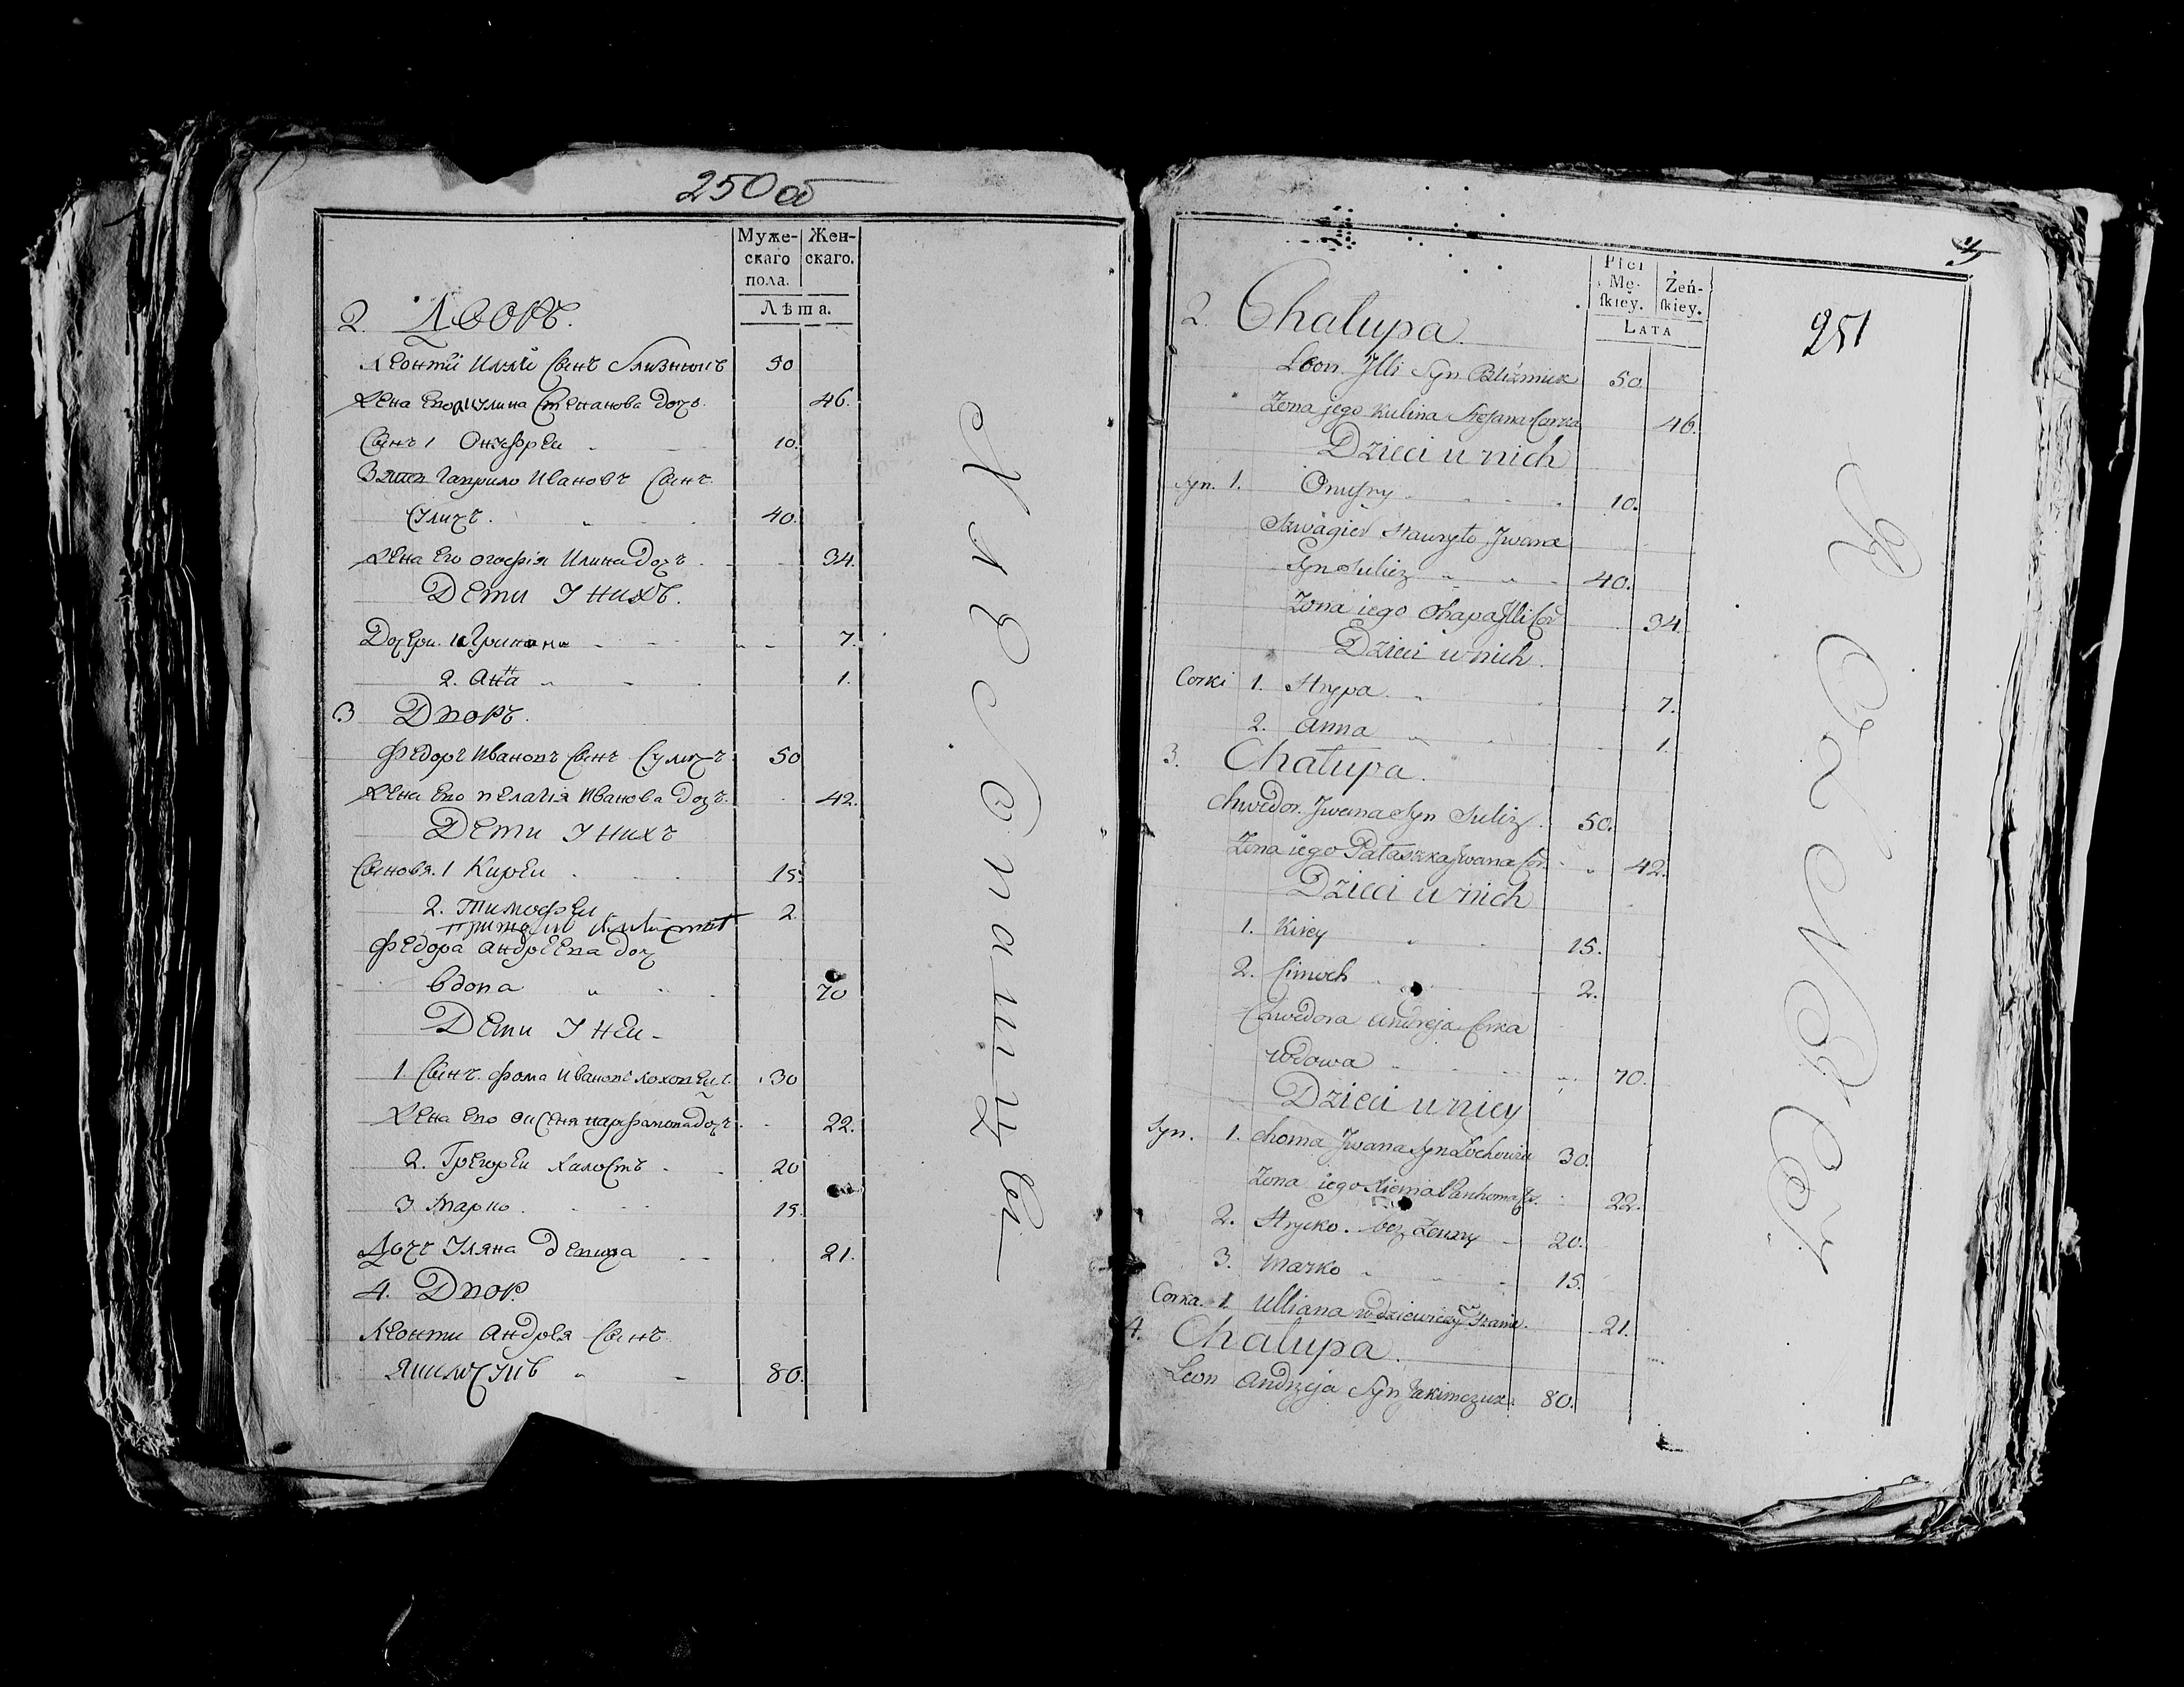 250 об
Муже-
скаго
пола.
Жен-
скаго.
Лѣта.
2. Дворъ.
Леонти Илли Сынъ Близнюкъ 50
Жена Его Акулина Степанова дочъ 46.
Сынъ 1 Онуфреи 10.
Зять Гаврило Ивановъ Сынъ
Суличъ. 40.
Жена Его огафія Илина дочъ 34.
Дети У нихъ.
Дочери. 7.
2. Анна 1.
3 Дворъ.
Федоръ Ивановъ Сынъ Суличъ 50
Жена Его пелагія Иванова дочъ. 42.
Дети У нихъ
Сыновя. 1 Киреи 15.
2. Тимофеи 2.
Федора андреева доч
вдова 70
Дети У неи
1. Сынъ. фома Ивановъ 30
Жена Его 22.
2. Грегореи Халостъ 20
3 Марко 15.
Дочъ Уляна девица 21.
4. Двор
Леонти андрея Сынъ
Якимчукъ 80.
Крестянъ
4
251
Płci
Mę-
ſkiey.
Żeń-
ſkiey.
LATA
2. Chałupa.
Leon Illi Syn Bliźniuk 50.
Zona jego Kulina Stefana Corka 46.
Dzieci u nich
Syn. 1. Onufry 10.
Szwagier Hawryło Jwana
Syn Sulicz 40.
Zona iego Ohapa Jlli Cor 34.
Dzieci u nich.
Corki 1. Hrypa 7.
2. Anna 1.
3. Chałupa.
Chwedor. Jwana Syn Sulicz 50.
Zona iego Pałaszka Jwana Cor. 42.
Dzieci u nich
1. Kirey 15.
2. Cimoch 2.
Chwedora Andreja Corka
wdowa 70.
Dzieci u niey
Syn. 1. Choma Jwana Syn 30.
Zona iego 22.
2. Hrycko. bez Zenny 20.
3. Marko 15.
Corka. 1. Ulliana w dziewiczym Stanie. 21.
4. Chałupa.
Leon Andrzeja Syn Jakimczuk 80.